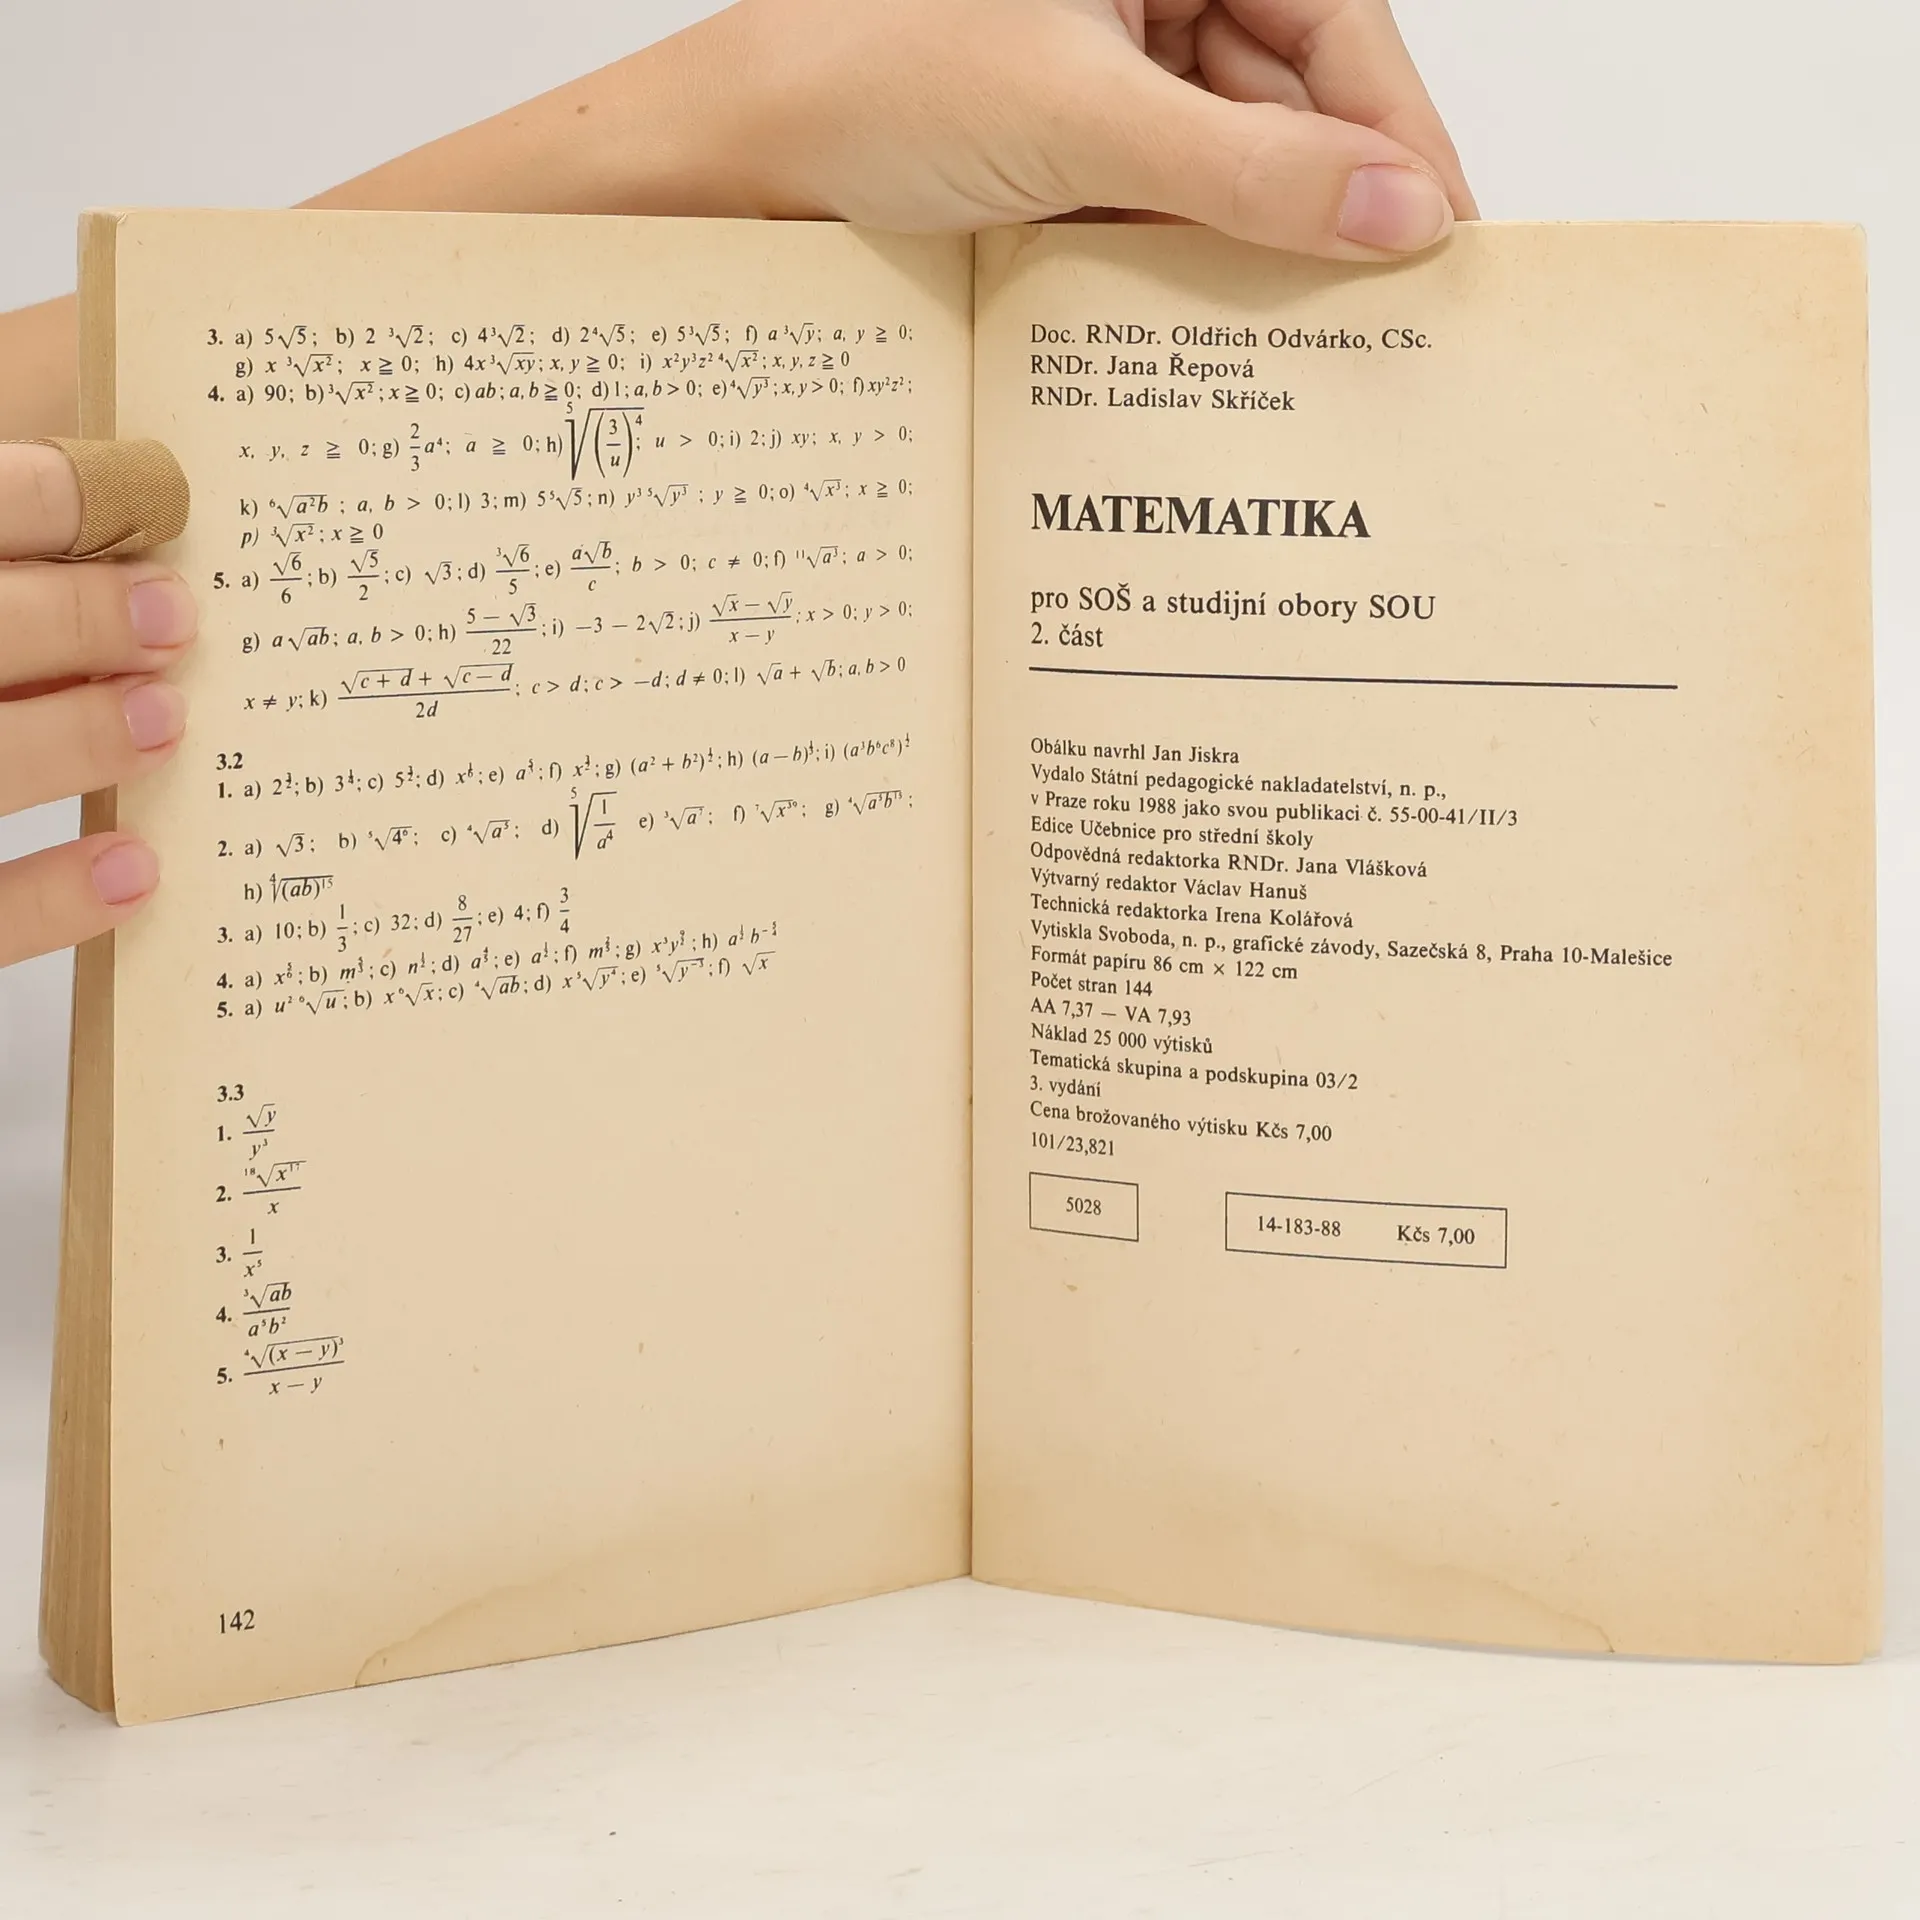 3. a) 5√5; b) 2 ³√2; c) 4³√2; d) 2⁴√5; e) 5³√5; f) a ³√y; a, y ≧ 0;
g) x ³√x²; x ≧ 0; h) 4x³√xy; x, y ≧ 0; i) x²y³z² ⁴√x²; x, y, z ≧ 0
4. a) 90; b) ³√x²; x ≧ 0; c) ab; a, b ≧ 0; d) 1; a, b > 0; e) ⁴√y³; x, y > 0; f) xy²z²;
x, y, z ≧ 0; g) 2/3 a⁴; a ≧ 0; h) ⁵√(3/u)⁴; u > 0; i) 2; j) xy; x, y > 0;
k) ⁶√a²b; a, b > 0; l) 3; m) 5⁵√5; n) y³ ⁵√y³; y ≧ 0; o) ⁴√x³; x ≧ 0;
p) ³√x²; x ≧ 0
5. a) √6/6; b) √5/2; c) √3; d) ³√6/5; e) a√b/c; b > 0; c ≠ 0; f) ¹¹√a³; a > 0;
g) a√ab; a, b > 0; h) 5 − √3/22; i) −3 − 2√2; j) √x − √y/x − y; x > 0; y > 0;
x ≠ y; k) √c + d + √c − d/2d; c > d; c > −d; d ≠ 0; l) √a + √b; a, b > 0
3.2
1. a) b) c) d) e) f) g) h) i)
2. a) √3; b) ⁵√4⁶; c) ⁴√a⁵; d) ⁵√1/a⁴ e) ³√a⁷; f) ⁷√x³⁹; g)
h) ⁴√(ab)¹⁵
3. a) 10; b) 1/3; c) 32; d) 8/27; e) 4; f) 3/4
4. a) b) c) d) e) f) g) h)
5. a) u² ⁶√u; b) x ⁶√x; c) ⁴√ab; d) x ⁵√y⁴; e) ⁵√y⁻³; f) √x
3.3
1. √y/y³
2. ¹⁸√x¹⁷/x
3. 1/x⁵
4. ³√ab/a⁵b²
5. ⁴√(x − y)³/x − y
142
Doc. RNDr. Oldřich Odvárko, CSc.
RNDr. Jana Řepová
RNDr. Ladislav Skříček
MATEMATIKA
pro SOŠ a studijní obory SOU
2. část
Obálku navrhl Jan Jiskra
Vydalo Státní pedagogické nakladatelství, n. p.,
v Praze roku 1988 jako svou publikaci č. 55-00-41/II/3
Edice Učebnice pro střední školy
Odpovědná redaktorka RNDr. Jana Vlášková
Výtvarný redaktor Václav Hanuš
Technická redaktorka Irena Kolářová
Vytiskla Svoboda, n. p., grafické závody, Sazečská 8, Praha 10-Malešice
Formát papíru 86 cm × 122 cm
Počet stran 144
AA 7,37 — VA 7,93
Náklad 25 000 výtisků
Tematická skupina a podskupina 03/2
3. vydání
Cena brožovaného výtisku Kčs 7,00
101/23,821
5028
14-183-88 Kčs 7,00